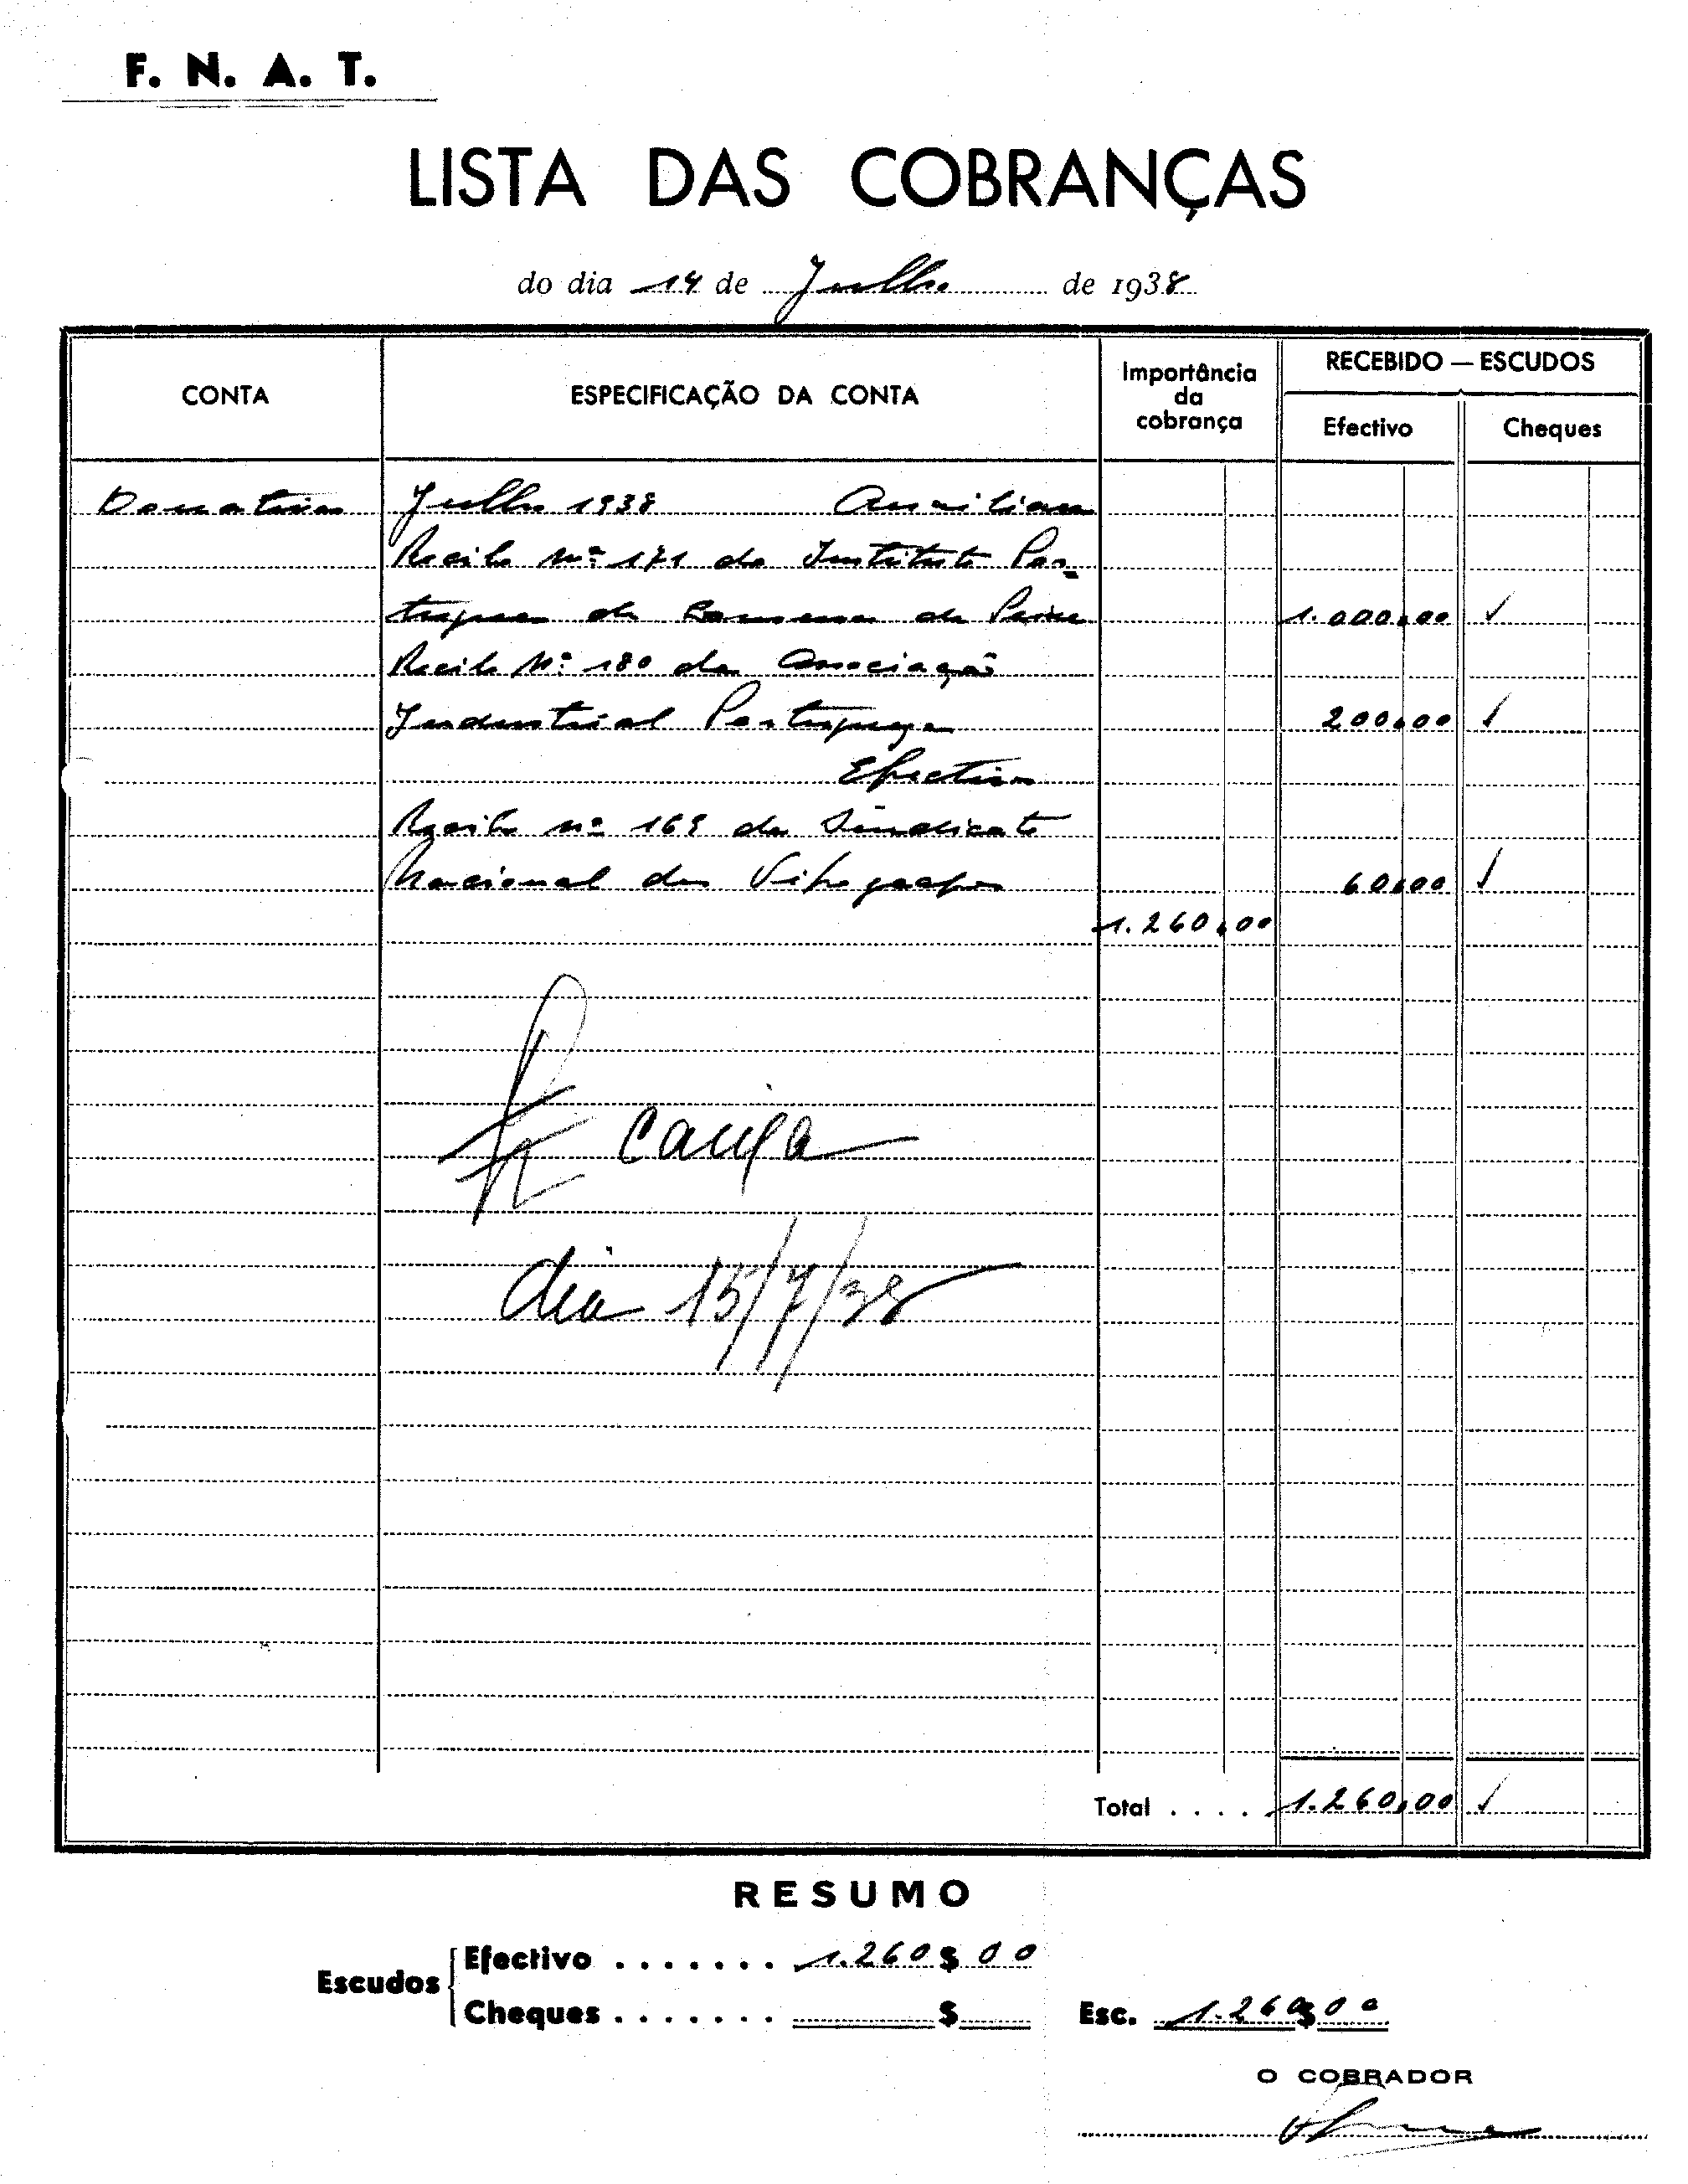 F. N. A. T.
LISTA DAS COBRANÇAS
do dia 14 de Julho de 1938
CONTA
ESPECIFICAÇÃO DA CONTA
Importância
da
cobrança
RECEBIDO — ESCUDOS
Efectivo
Cheques
Donativos Julho 1938 Auxiliares
Recibo nº 171 do Instituto Por-
tuguez de Conservas de Peixe 1.000,00 ✓
Recibo Nº 180 da Associação
Industrial Portugueza 200,00 ✓
Efectivo
Recibo nº 169 do Sindicato
Nacional dos Tipografos 60,00 ✓
1.260,00
caixa
dia 15/7/38
Total .... 1.260,00 ✓
RESUMO
Escudos
Efectivo ....... 1.260$00
Cheques ....... $
Esc. 1.260$00
O COBRADOR